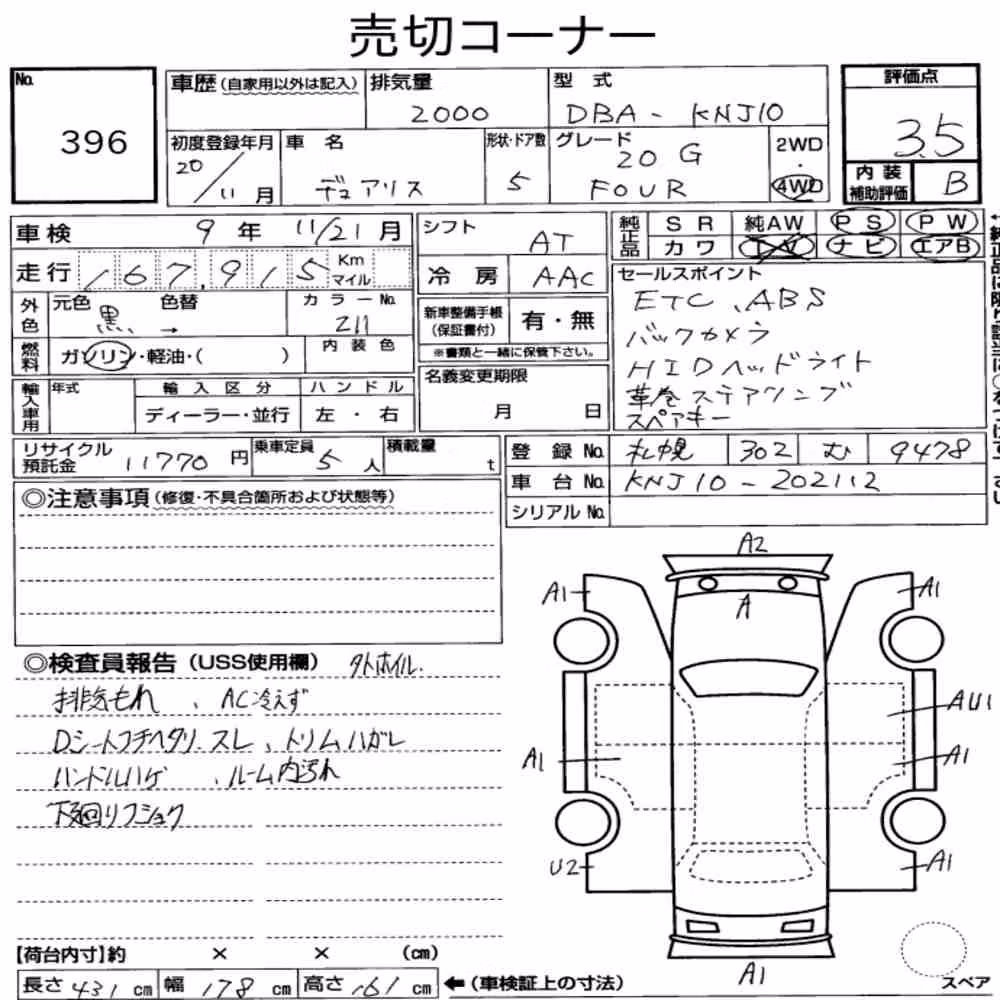 売切コーナー
No. 396
車歴(自家用以外は記入) 排気量 2000 型式 DBA - KNJ10
評価点 3.5
内装補助評価 B
初度登録年月 20/11月 車名 デュアリス 形状・ドア数 5 グレード 20G FOUR 2WD・4WD
車検 9年 11/21月
シフト AT
純正品 SR 純AW PS PW
カワ TV ナビ エアB
走行 167,915 Km マイル
冷房 AAC
セールスポイント
ETC、ABS
バックカメラ
HIDヘッドライト
革巻ステアリング
スペアキー
外色 元色 黒 → 色替 カラーNo. 211
新車整備手帳(保証書付) 有・無
※書類と一緒に保管下さい。
燃料 ガソリン・軽油・( ) 内装色
名義変更期限 月 日
輸入車用 年式 輸入区分 ハンドル
ディーラー・並行 左・右
リサイクル預託金 11770円 乗車定員 5人 積載量 t
登録No. 札幌 302 む 9478
車台No. KNJ10-202112
シリアルNo.
◎注意事項(修復・不具合箇所および状態等)
◎検査員報告(USS使用欄) タトホイル.
排気もれ、AC冷えず
Dシートフチヘタリ.スレ、トリムハガレ
ハンドルハゲ、ルーム内汚れ
下廻りフショク
A2
A1 A A1
AU1
A1 A1
U2 A1
A1
スペア
【荷台内寸】約 × × (cm)
長さ 431 cm 幅 178 cm 高さ 161 cm ←(車検証上の寸法)